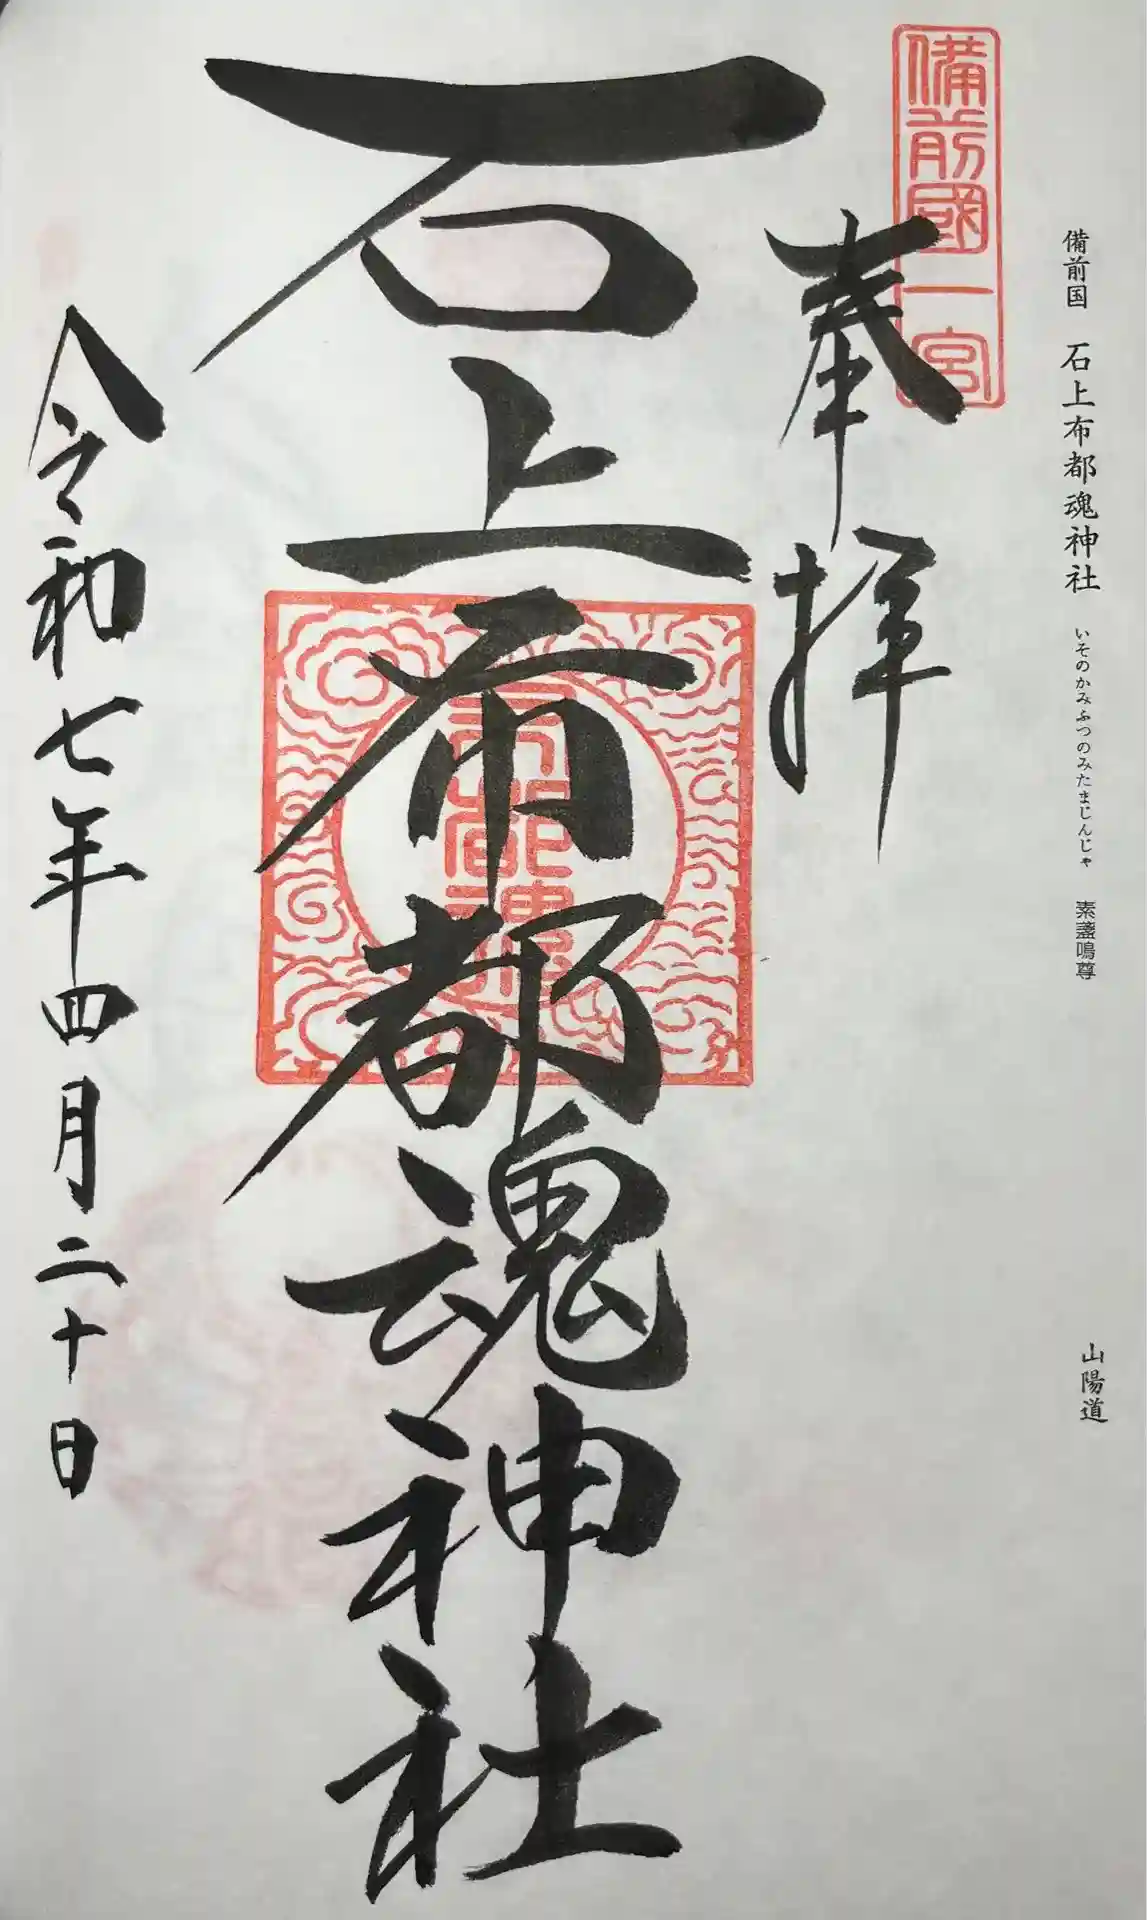 備前国 石上布都魂神社 いそのかみふつのみたまじんじゃ 素盞鳴尊 山陽道
備前國一宮
奉拝
石上布都魂神社
布都魂
令和七年四月二十日